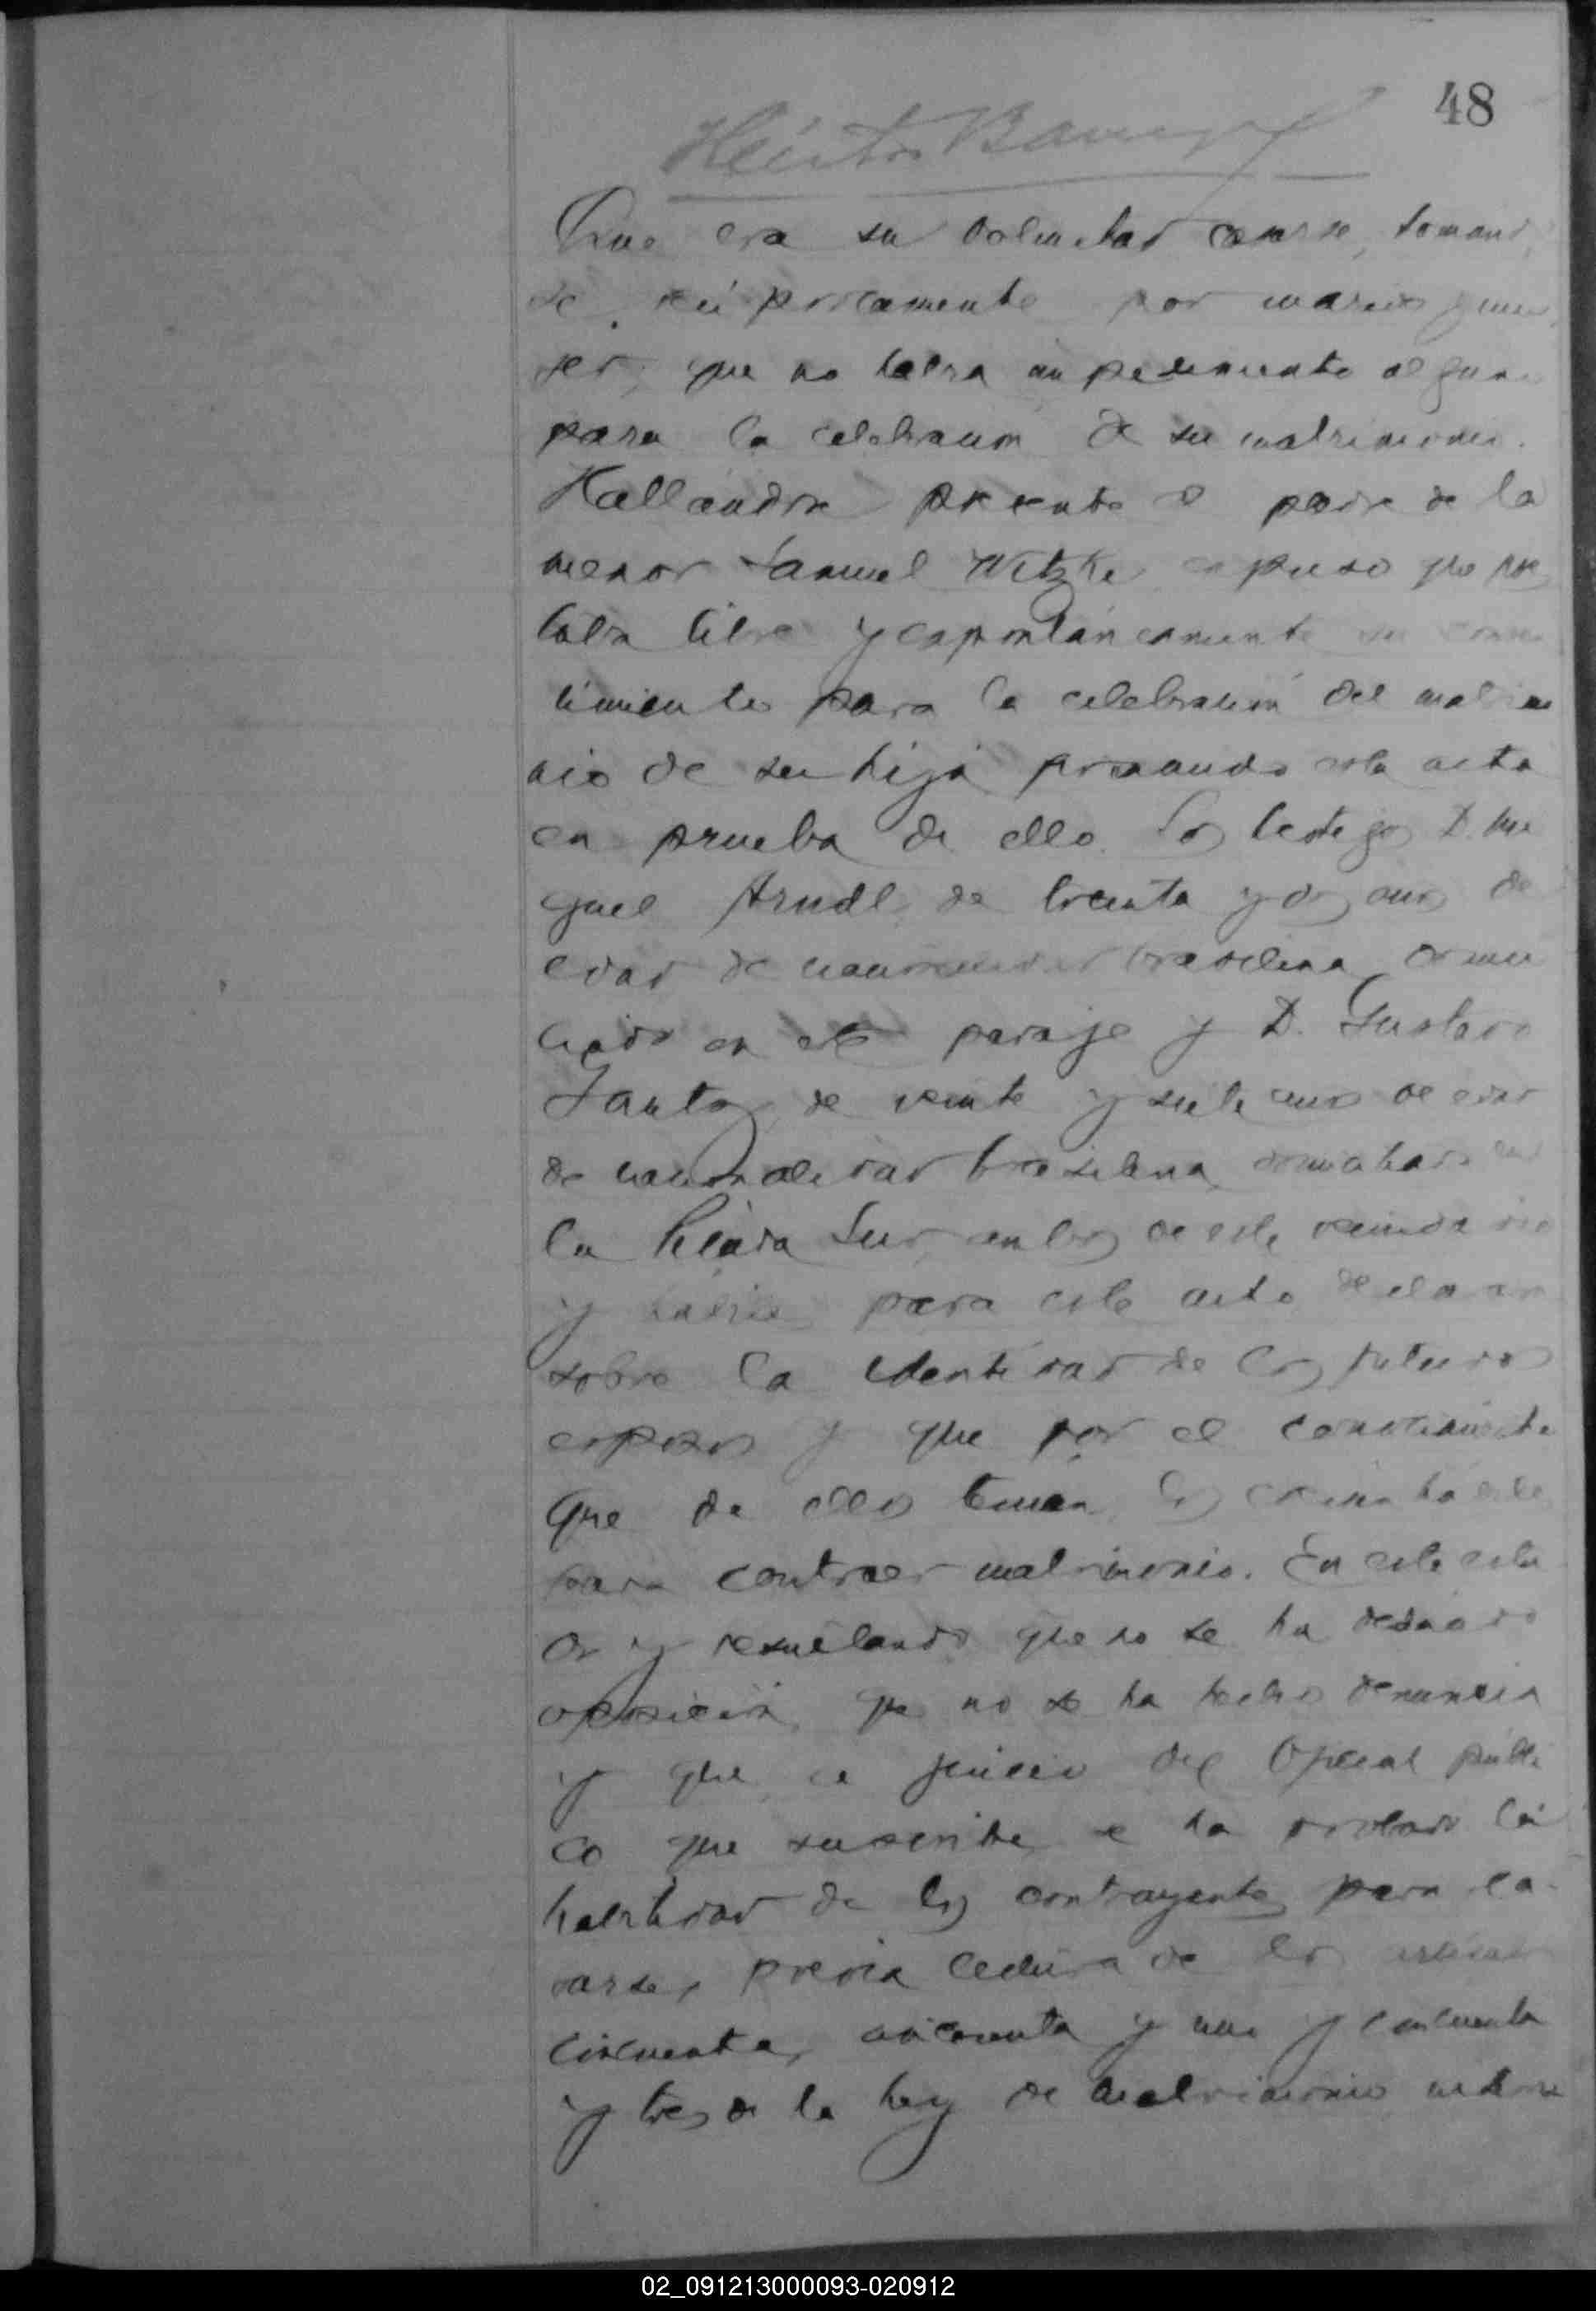 48
Héctor
Que era su voluntad casarse, tomand
se recíprocamente por marido y mu
jer, que no había impedimento alguno
para la celebración de su matrimonio.
Hallándose presente el padre de la
menor Samuel Witzke expuso que pres
taba libre y espontáneamente su consen
timiento para la celebración del matrimo
nio de su hija firmando esta acta
en prueba de ello. Los testigos D. Mi
guel Arndt de treinta y dos años de
edad de nacionalidad brasilera, domi
ciliado en este paraje y D. Gustavo
de veinte y siete años de edad
de nacionalidad brasilera domiciliado en
la Picada Sur, ambos de este vecindario
y hábiles para este acto declararon
sobre la identidad de los futuros
esposos y que por el conocimiento
que de ellos tenían los creían hábiles
para contraer matrimonio. En este esta
do y resultando que no se ha deducido
oposición, que no se ha hecho denuncia
y que a juicio del Oficial públi
co que suscribe se ha probado la
habilidad de los contrayentes para ca
sarse, previa lectura de los artículos
cincuenta, cincuenta y uno y cincuenta
y tres de la ley de matrimonio
02_091213000093-020912